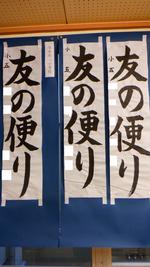 友の便り
小五
友の便り
小五
友の便り
小五